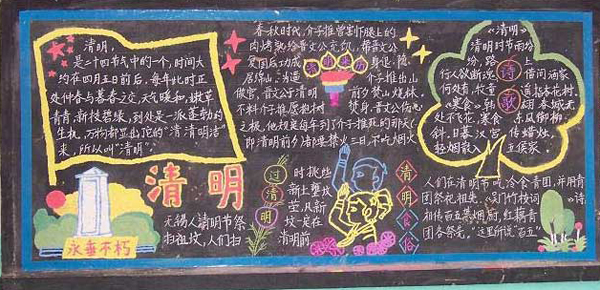 清明,
是二十四节气中的一个,时间大
约在四月五日前后,每年此时正
处仲春与暮春之交,天气暖和,嫩草
青青,新枝碧绿,到处是一派蓬勃的
生机,万物都显出陀的"清清明洁"
来,所以叫"清明"。
清明
永垂不朽
春秋时代,介子推曾割下腿上的
肉烤熟给晋文公充饥,
居绵山,
做官,晋文公清明
不料介子推愿抱树
之极,他规定每年到了介子推死的那天
(即清明前夕)诸侯禁火三日,不吃烟火
过清明
无锡人清明节祭
扫祖坟,人们扫
时挑些
新土壅坟
莹,风新
坟一定在
清明前
《清明》
清明时节雨纷
纷,路上
行人欲断魂。借问酒家
何处有,牧童遥指杏花村。
《寒食》韩翃 春城无
处不飞花,寒食东风御柳
斜。日暮汉宫传蜡烛,
轻烟散入五侯家。
诗歌
清明食俗
人们在清明节吃冷食青团,并用青
团祭祀祖先,《吴门竹枝词》诗
祖传百五禁烟厨,红藕青
团各祭先,"这里所说"百五"